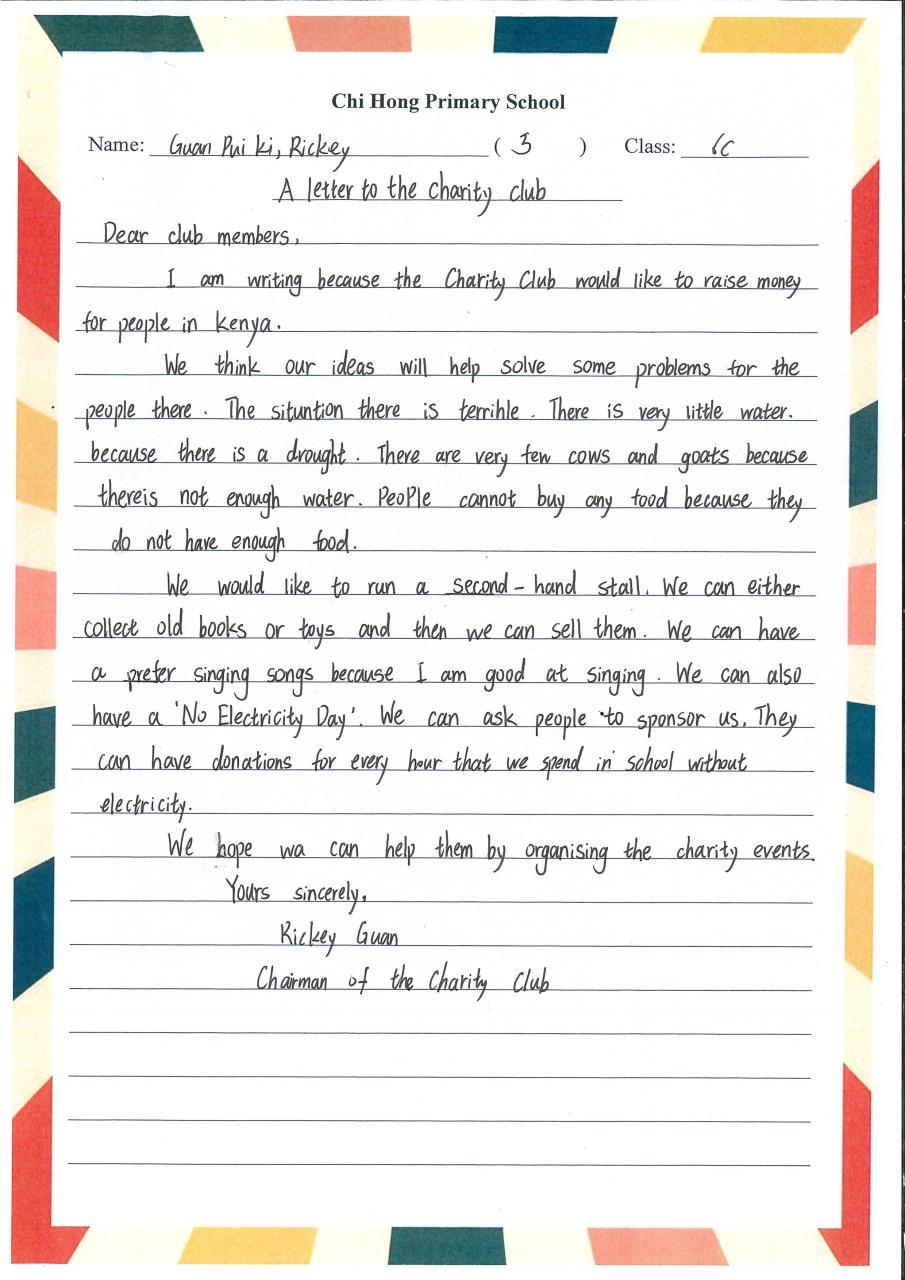 Chi Hong Primary School
Name: Guan Pui Ki, Rickey ( 3 ) Class: 6C
A letter to the charity club
Dear club members,
I am writing because the Charity Club would like to raise money
for people in kenya.
We think our ideas will help solve some problems for the
people there. The situntion there is terrihle. There is very little water.
because there is a drought. There are very few cows and goats because
thereis not enough water. PeoPle cannot buy any food because they
do not have enough food.
We would like to run a second-hand stall. We can either
collect old books or toys and then we can sell them. We can have
a prefer singing songs because I am good at singing. We can also
have a 'No Electricity Day'. We can ask people to sponsor us. They
can have donations for every hour that we spend in school without
electricity.
We hope wa can help them by organising the charity events.
Yours sincerely,
Rickey Guan
Chairman of the Charity Club